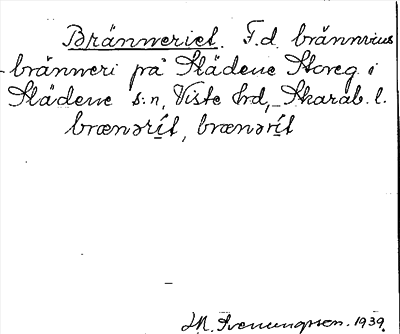 Bränneriet. F.d. brännvins
-bränneri på Slädene Storeg. i
Slädene s:n, Viste hrd, Skarab. l.
brænərít, brænərít
1939.